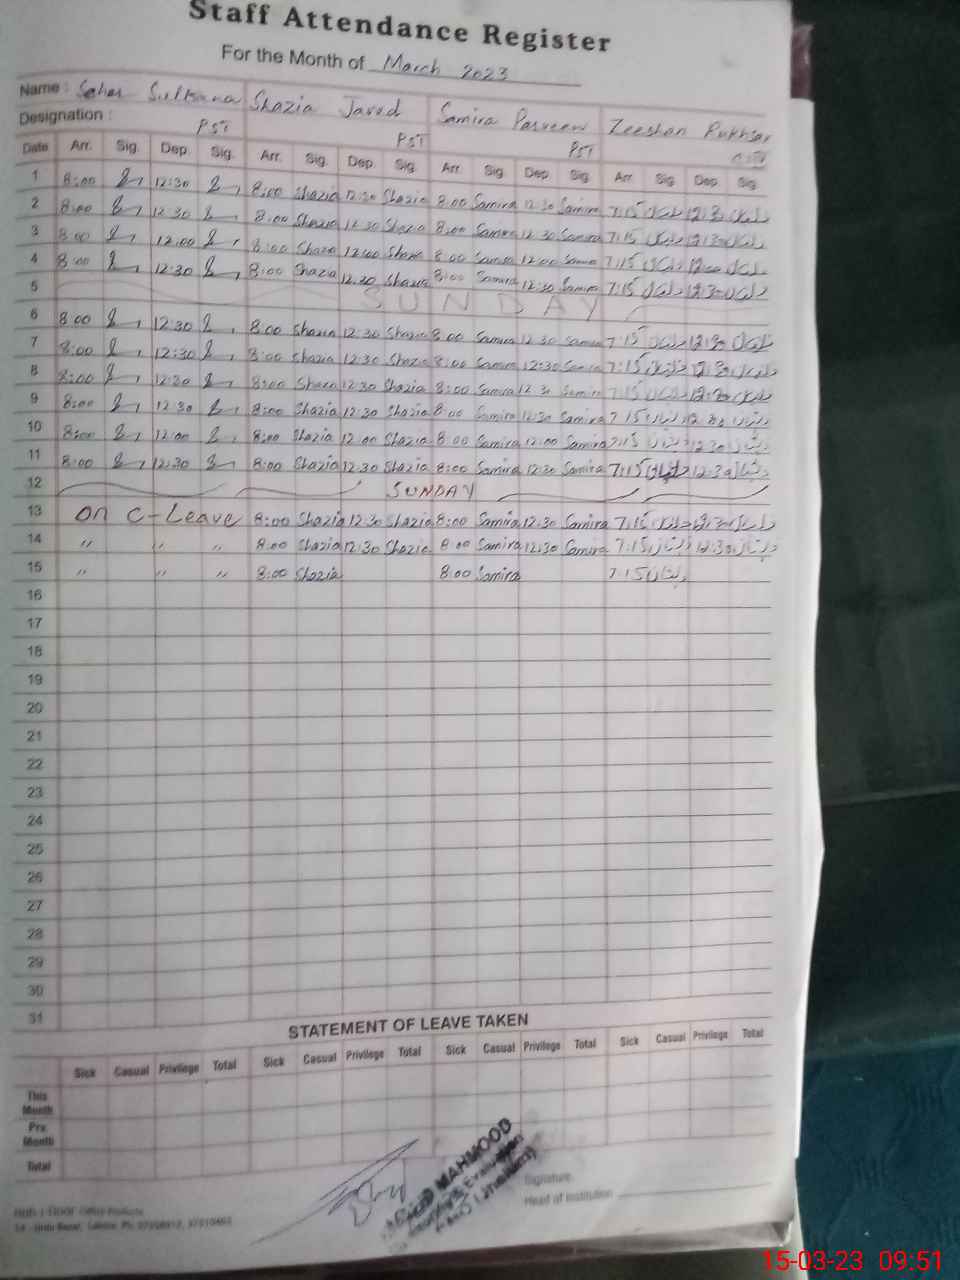 Staff Attendance Register
For the Month of March 2023
Name : Seher Sultana Shazia Javed Samira Parveen Zeeshan Rukhsar
Designation : PST PST PST
Date Arr. Sig. Dep. Sig. Arr. Sig. Dep. Sig. Arr. Sig. Dep. Sig. Arr. Sig. Dep. Sig.
1 8:00 12:30 8:00 Shazia 12:30 Shazia 8:00 Samira 12:30 Samira 7:15 12:30
2 8:00 12:30 8:00 Shazia 12:30 Shazia 8:00 Samira 12:30 Samira 7:15 12:30
3 8:00 12:00 8:00 Shazia 12:00 Shazia 8:00 Samira 12:00 Samira 7:15 12:00
4 8:00 12:30 8:00 Shazia 12:30 Shazia 8:00 Samira 12:30 Samira 7:15 12:30
5 SUNDAY
6 8:00 12:30 8:00 Shazia 12:30 Shazia 8:00 Samira 12:30 Samira 7:15 12:30
7 8:00 12:30 8:00 Shazia 12:30 Shazia 8:00 Samira 12:30 Samira 7:15 12:30
8 8:00 12:30 8:00 Shazia 12:30 Shazia 8:00 Samira 12:30 Samira 7:15 12:30
9 8:00 12:30 8:00 Shazia 12:30 Shazia 8:00 Samira 12:30 Samira 7:15 12:30
10 8:00 12:00 8:00 Shazia 12:00 Shazia 8:00 Samira 12:00 Samira 7:15 12:30
11 8:00 12:30 8:00 Shazia 12:30 Shazia 8:00 Samira 12:30 Samira 7:15 12:30
12 SUNDAY
13 on C-Leave 8:00 Shazia 12:30 Shazia 8:00 Samira 12:30 Samira 7:15 12:30
14 " " " 8:00 Shazia 12:30 Shazia 8:00 Samira 12:30 Samira 7:15 12:30
15 " " " 8:00 Shazia 8:00 Samira 7:15
16
17
18
19
20
21
22
23
24
25
26
27
28
29
30
31
STATEMENT OF LEAVE TAKEN
Sick Casual Privilege Total Sick Casual Privilege Total Sick Casual Privilege Total Sick Casual Privilege Total
This Month
Pre. Month
Total
MAHMOOD
Signature
Head of Institution
Office Products
Urdu Bazar, Lahore. Ph:
15-03-23 09:51